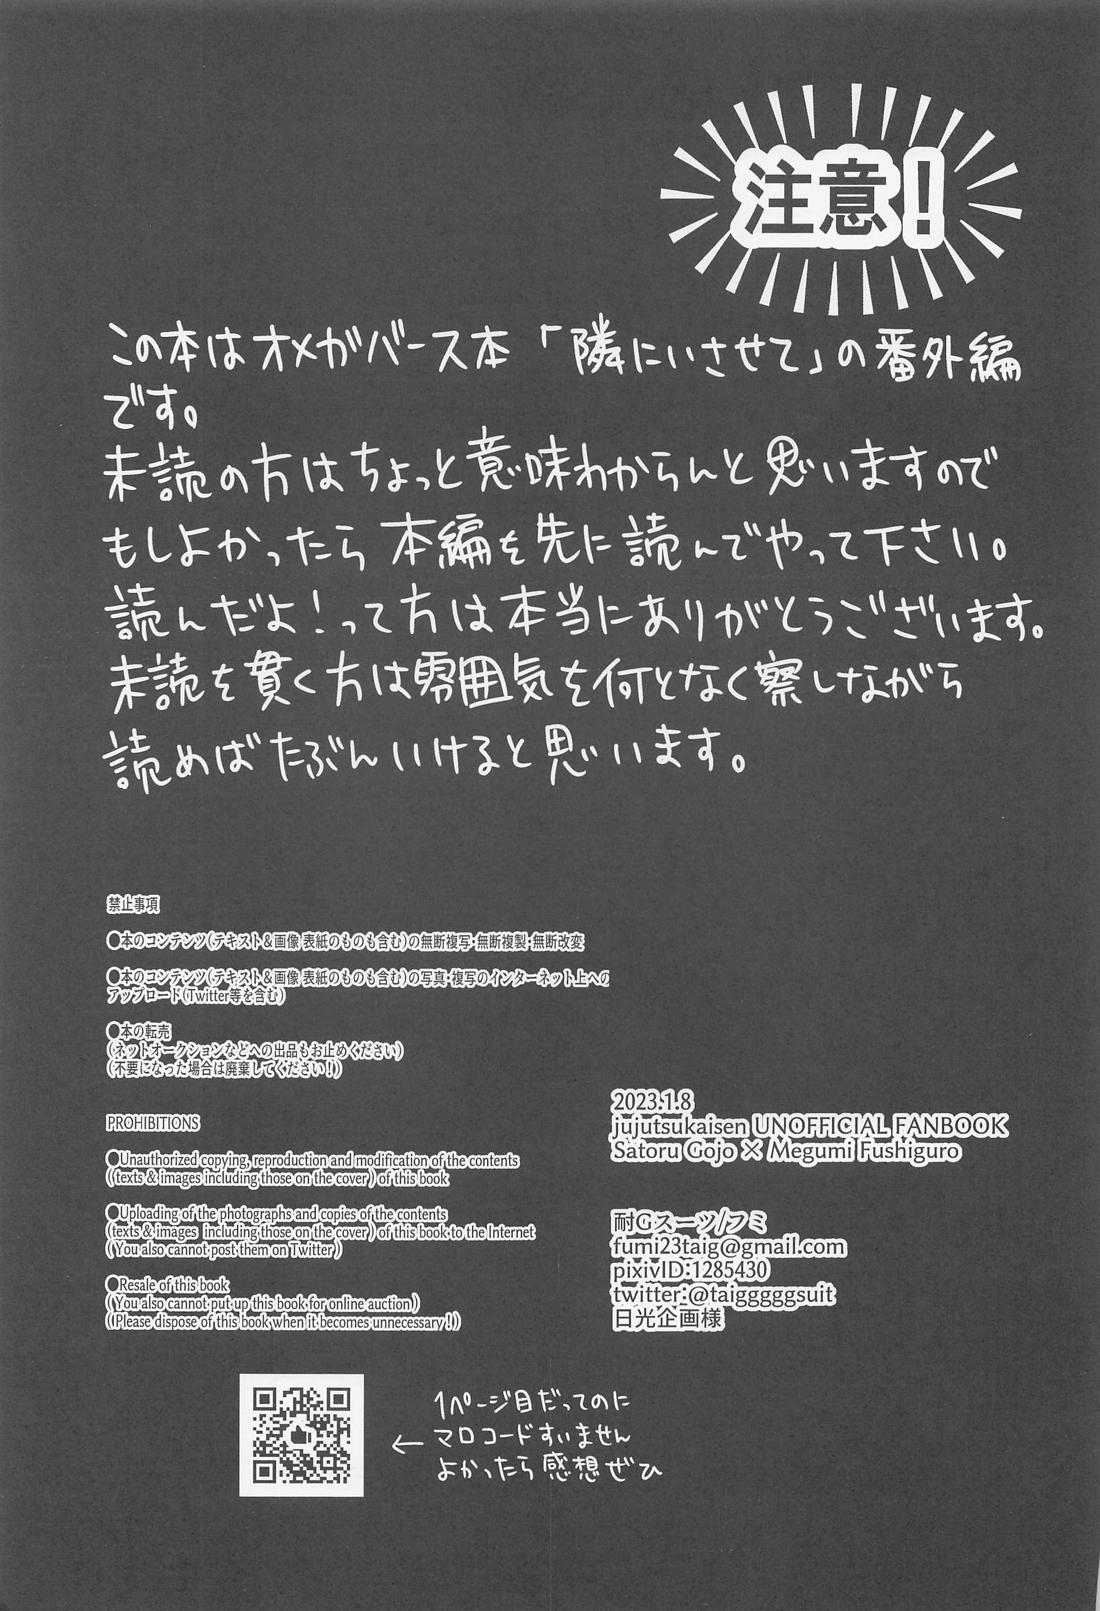 注意!
この本はオメガバース本「隣にいさせて」の番外編
です。
未読の方はちょっと意味わからんと思いますので
もしよかったら本編を先に読んでやって下さい。
読んだよ!って方は本当にありがとうございます。
未読を貫く方は雰囲気を何となく察しながら
読めばたぶんいけると思います。
禁止事項
●本のコンテンツ(テキスト&画像 表紙のものも含む)の無断複写・無断複製・無断改変
●本のコンテンツ(テキスト&画像 表紙のものも含む)の写真・複写のインターネット上への
アップロード(Twitter等を含む)
●本の転売
(ネットオークションなどへの出品もお止めください)
(不要になった場合は廃棄してください!)
PROHIBITIONS
●Unauthorized copying, reproduction and modification of the contents
(texts & images including those on the cover) of this book
●Uploading of the photographs and copies of the contents
(texts & images including those on the cover) of this book to the Internet
(You also cannot post them on Twitter)
●Resale of this book
(You also cannot put up this book for online auction)
(Please dispose of this book when it becomes unnecessary!)
2023.1.8
jujutsukaisen UNOFFICIAL FANBOOK
Satoru Gojo × Megumi Fushiguro
耐Gスーツ/フミ
fumi23taig@gmail.com
pixivID:1285430
twitter:@taigggggsuit
日光企画様
1ページ目だってのに
←マロコードすいません
よかったら感想ぜひ